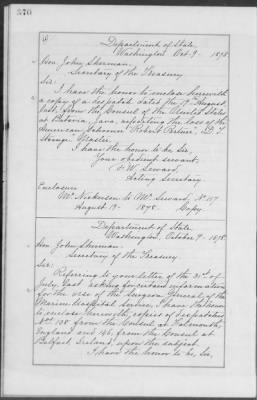 370
Department of State.
Washington Oct. 9 1878
Hon. John Sherman.
Secretary of the Treasury
Sir:
I have the honor to enclose herewith
a copy of a despatch dated the 19th August,
last, from the Consul of the United States
at Batavia, Java, reporting the loss of the
American Schooner "Robert
Master.
I have the honor to be, Sir,
Your obedient servant,
F. W. Seward,
Acting Secretary
Enclosure
to Mr. Seward, No. 117
August 19 - 1878. Copy.
Department of State.
Washington, October 9 - 1878
Hon. John Sherman.
Secretary of the Treasury
Sir:
Referring to your letter of the 31st of
July last asking for certain information
for the use of the Surgeon General of the
Marine Hospital Service, I have the honor
to enclose herewith, copies of despatches
No. 108 from the Consul at Falmouth,
England and 146, from the Consul at
Belfast, Ireland, upon the subject.
I have the honor to be, Sir,